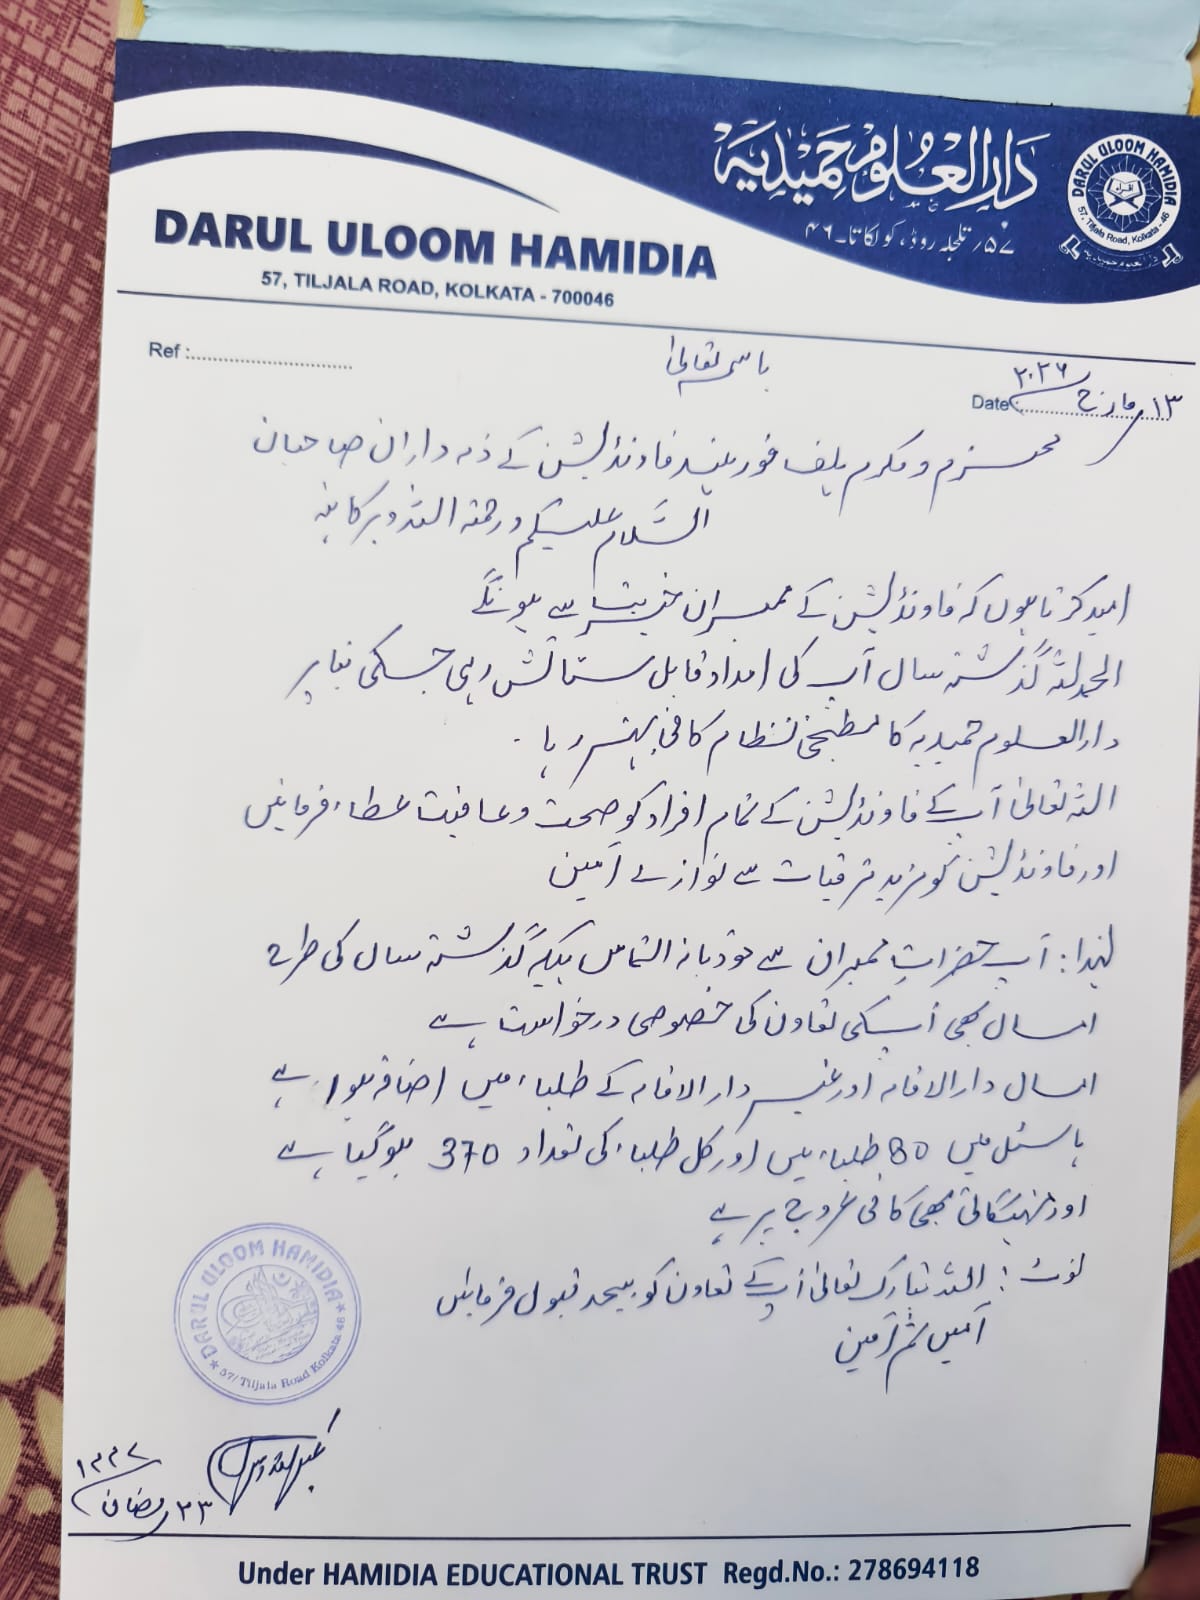 دارالعلوم حمیدیہ
۵۷؍ تلجلہ روڈ، کولکاتا۔۴۶
DARUL ULOOM HAMIDIA
57, Tiljala Road, Kolkata - 46
دارالعلوم حمیدیہ
DARUL ULOOM HAMIDIA
57, TILJALA ROAD, KOLKATA - 700046
Ref :
باسمہ تعالیٰ
Date : ۱۳ مارچ ۲۰۲۶
محترم و مکرم ہلف فور نیڈ فاونڈیشن کے ذمہ داران صاحبان
السلام علیکم ورحمتہ اللہ وبرکاتہ
امید کرتا ہوں کہ فاونڈیشن کے ممبران خیریت سے ہونگے
الحمدللہ گذشتہ سال آپ کی امداد قابل ستائش رہی جسکی بنا پر
دارالعلوم حمیدیہ کا مطبخی نظام کافی بہتر رہا۔
اللہ تعالیٰ آپ کے فاونڈیشن کے تمام افراد کو صحت وعافیت عطاء فرمائیں
اور فاونڈیشن کو مزید ترقیات سے نوازے آمین
لہٰذا: آپ حضرات ممبران سے مودبانہ التماس ہیکہ گذشتہ سال کی طرح
امسال بھی آپکی تعاون کی خصوصی درخواست ہے
امسال دارالاقامہ اور غیر دارالاقامہ کے طلباء میں اضافہ ہوا ہے
ہاسٹل میں 80 طلباء ہیں اور کل طلباء کی تعداد 370 ہوگیا ہے
اور مہنگائی بھی کافی عروج پر ہے
نوٹ: اللہ تبارک تعالیٰ آپ کے تعاون کو بیحد قبول فرمائیں
آمین ثم آمین
DARUL ULOOM HAMIDIA
57/ Tiljala Road Kolkata 46
۲۳ رمضان ۱۴۴۷
Under HAMIDIA EDUCATIONAL TRUST Regd.No.: 278694118